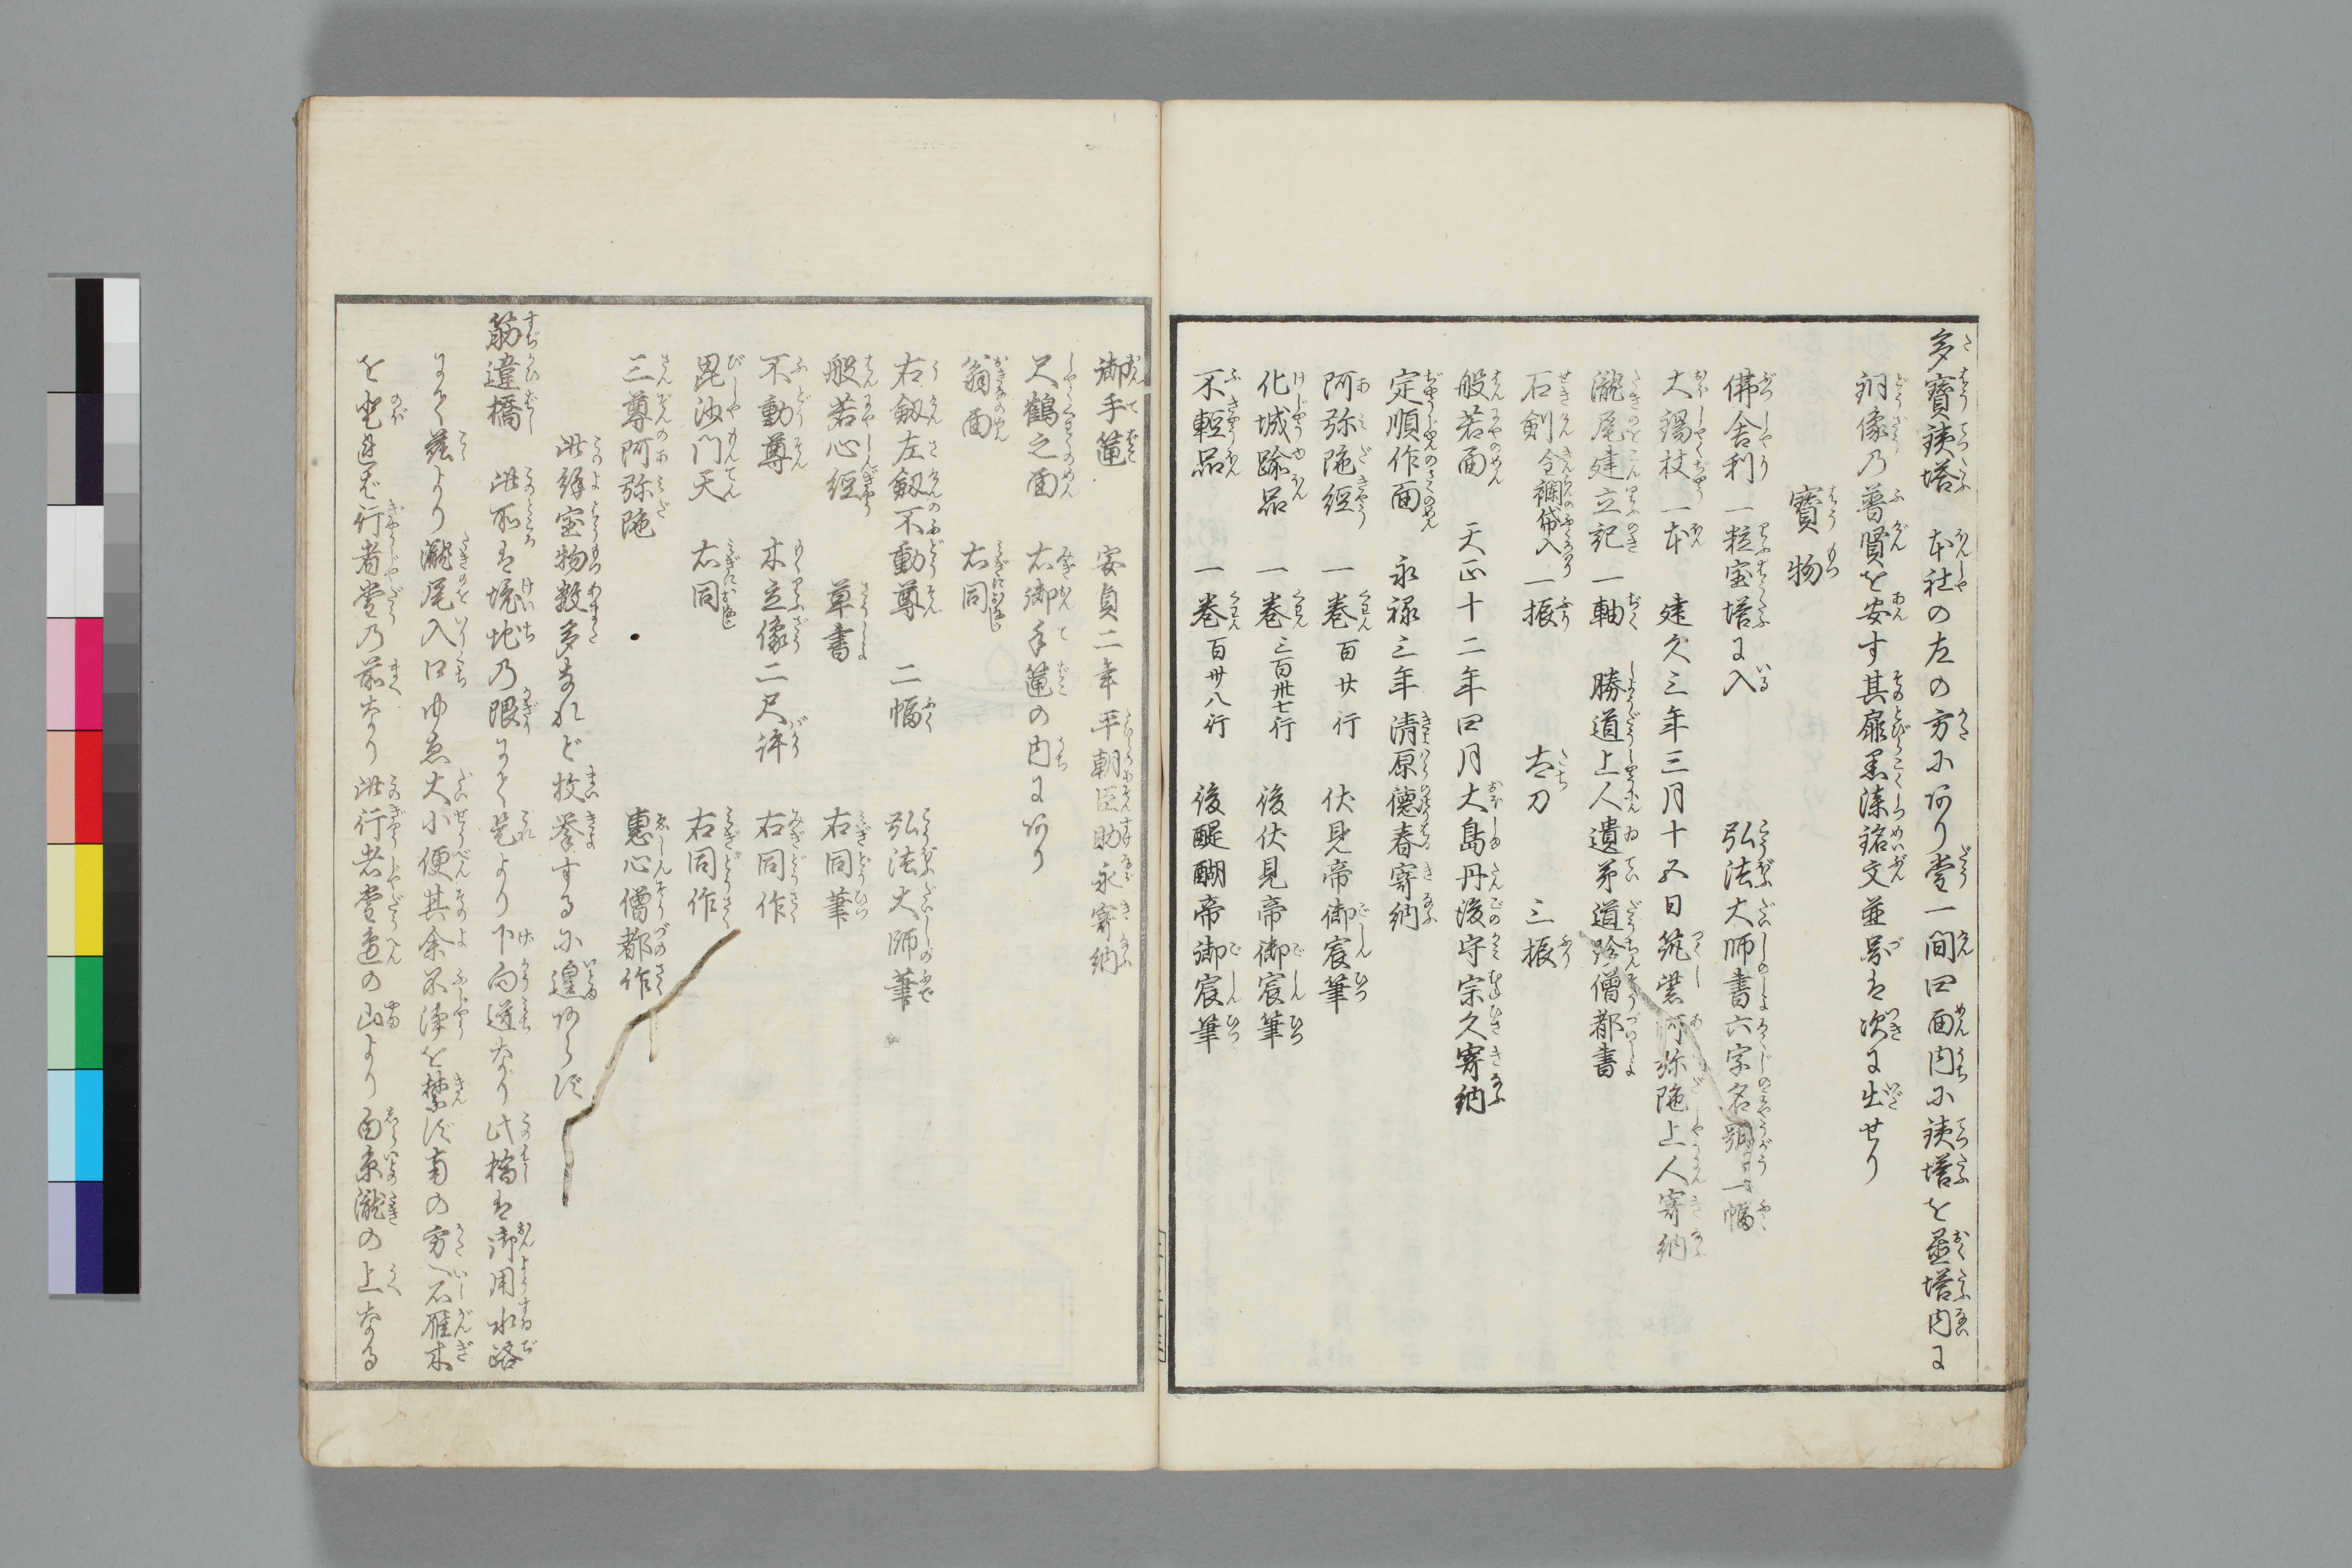 多寶鐡塔　本社の左の方にあり堂一間四面内に鐡塔を置塔内に
銅像の普賢を安す其扉黒漆銘文並図は次に出せり
寶物
佛舎利　一粒宝塔に入　弘法大師書六字名號　一幅
大錫杖　一本　建久三年三月十五日筑紫阿弥陁上人寄納
瀧尾建立記　一軸　勝道上人遺弟道珍僧都書
石剣　金襴帒入　一振　太刀　三振
般若面　天正十二年四月大島丹後守宗久寄納
定順作面　永禄三年　清原德春寄納
阿弥陁經　一巻　百廿行　伏見帝御宸筆
化城踰品　一巻　三百卅七行　後伏見帝御宸筆
不軽品　一巻　百廿八行　後醍醐帝御宸筆
御手筥　安貞二年　平朝臣助永寄納
尺鶴之面　右御手筥の内にあり
翁面　右同
右劔左劔不動尊　二幅　弘法大師筆
般若心經　草書　右同筆
不動尊　木立像二尺許　右同作
毘沙門天　右同　右同作
三尊阿弥陁　惠心僧都作
此餘宝物数多あれど枚挙するに遑あらず
筋違橋　此所は境地の限にて是より下向道なり此橋は御用水路
にて茲より瀧尾入口ゆゑ大小便其余不浄を禁ず南の方へ石雁木
を登れば行者堂の前なり此行者堂邉の山より白糸瀧の上なる